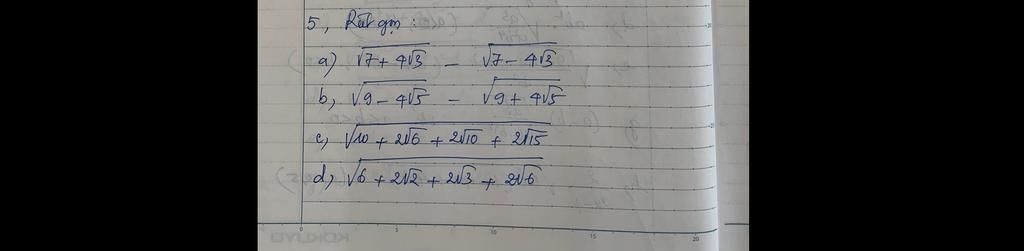 5, Rút gọn :
a) √(7 + 4√3) - √(7 - 4√3)
b, √(9 - 4√5) - √(9 + 4√5)
c, √(10 + 2√6 + 2√10 + 2√15)
d, √(6 + 2√2 + 2√3 + 2√6)
5 10 15 20